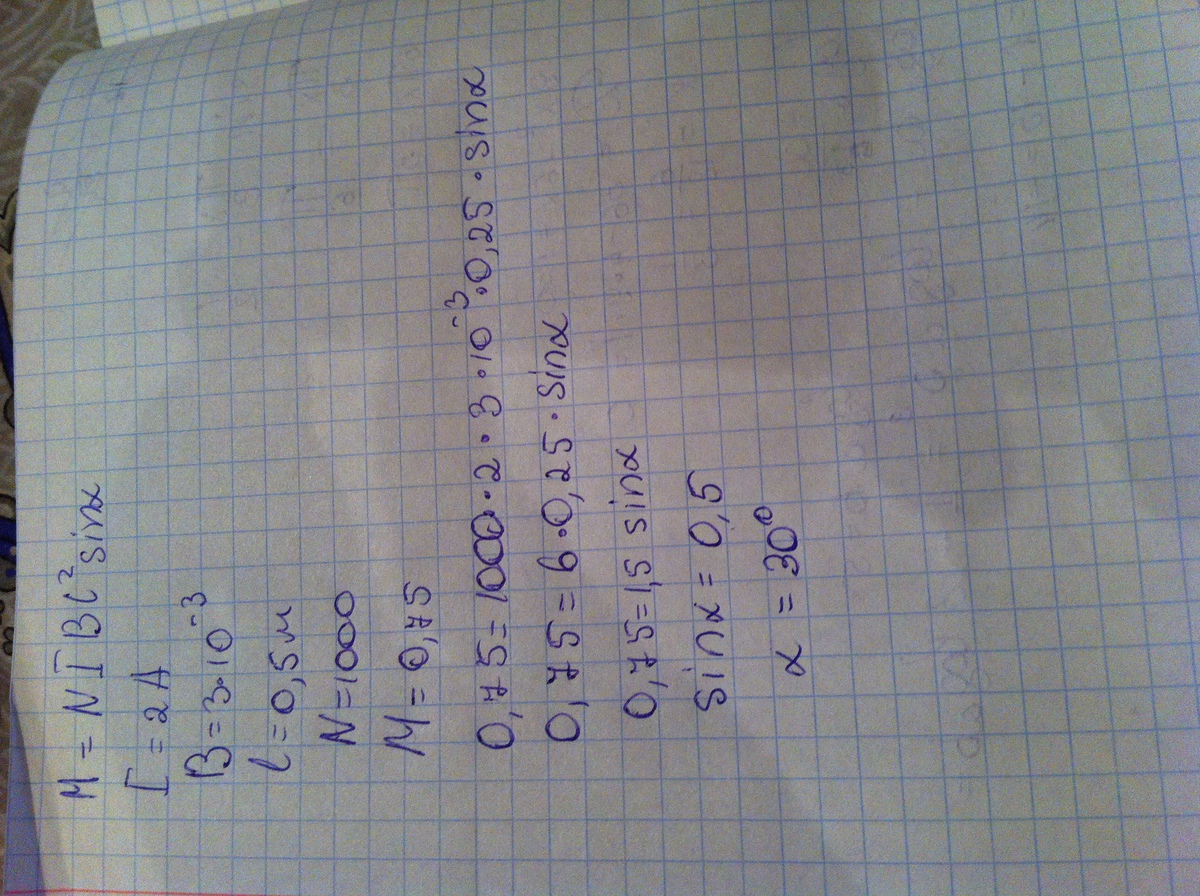 M = N I B l² sinα
I = 2A
B = 3·10⁻³
l = 0,5м
N = 1000
M = 0,75
0,75 = 1000·2·3·10⁻³·0,25·sinα
0,75 = 6·0,25·sinα
0,75 = 1,5 sinα
sinα = 0,5
α = 30°